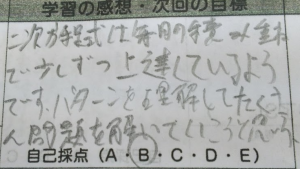 学習の感想・次回の目標
二次方程式は毎日の積み重ね
で少しずつ上達しているよう
です。パターンを理解してたくさ
ん問題を解いていこうと思います
自己採点(A・B・C・D・E)